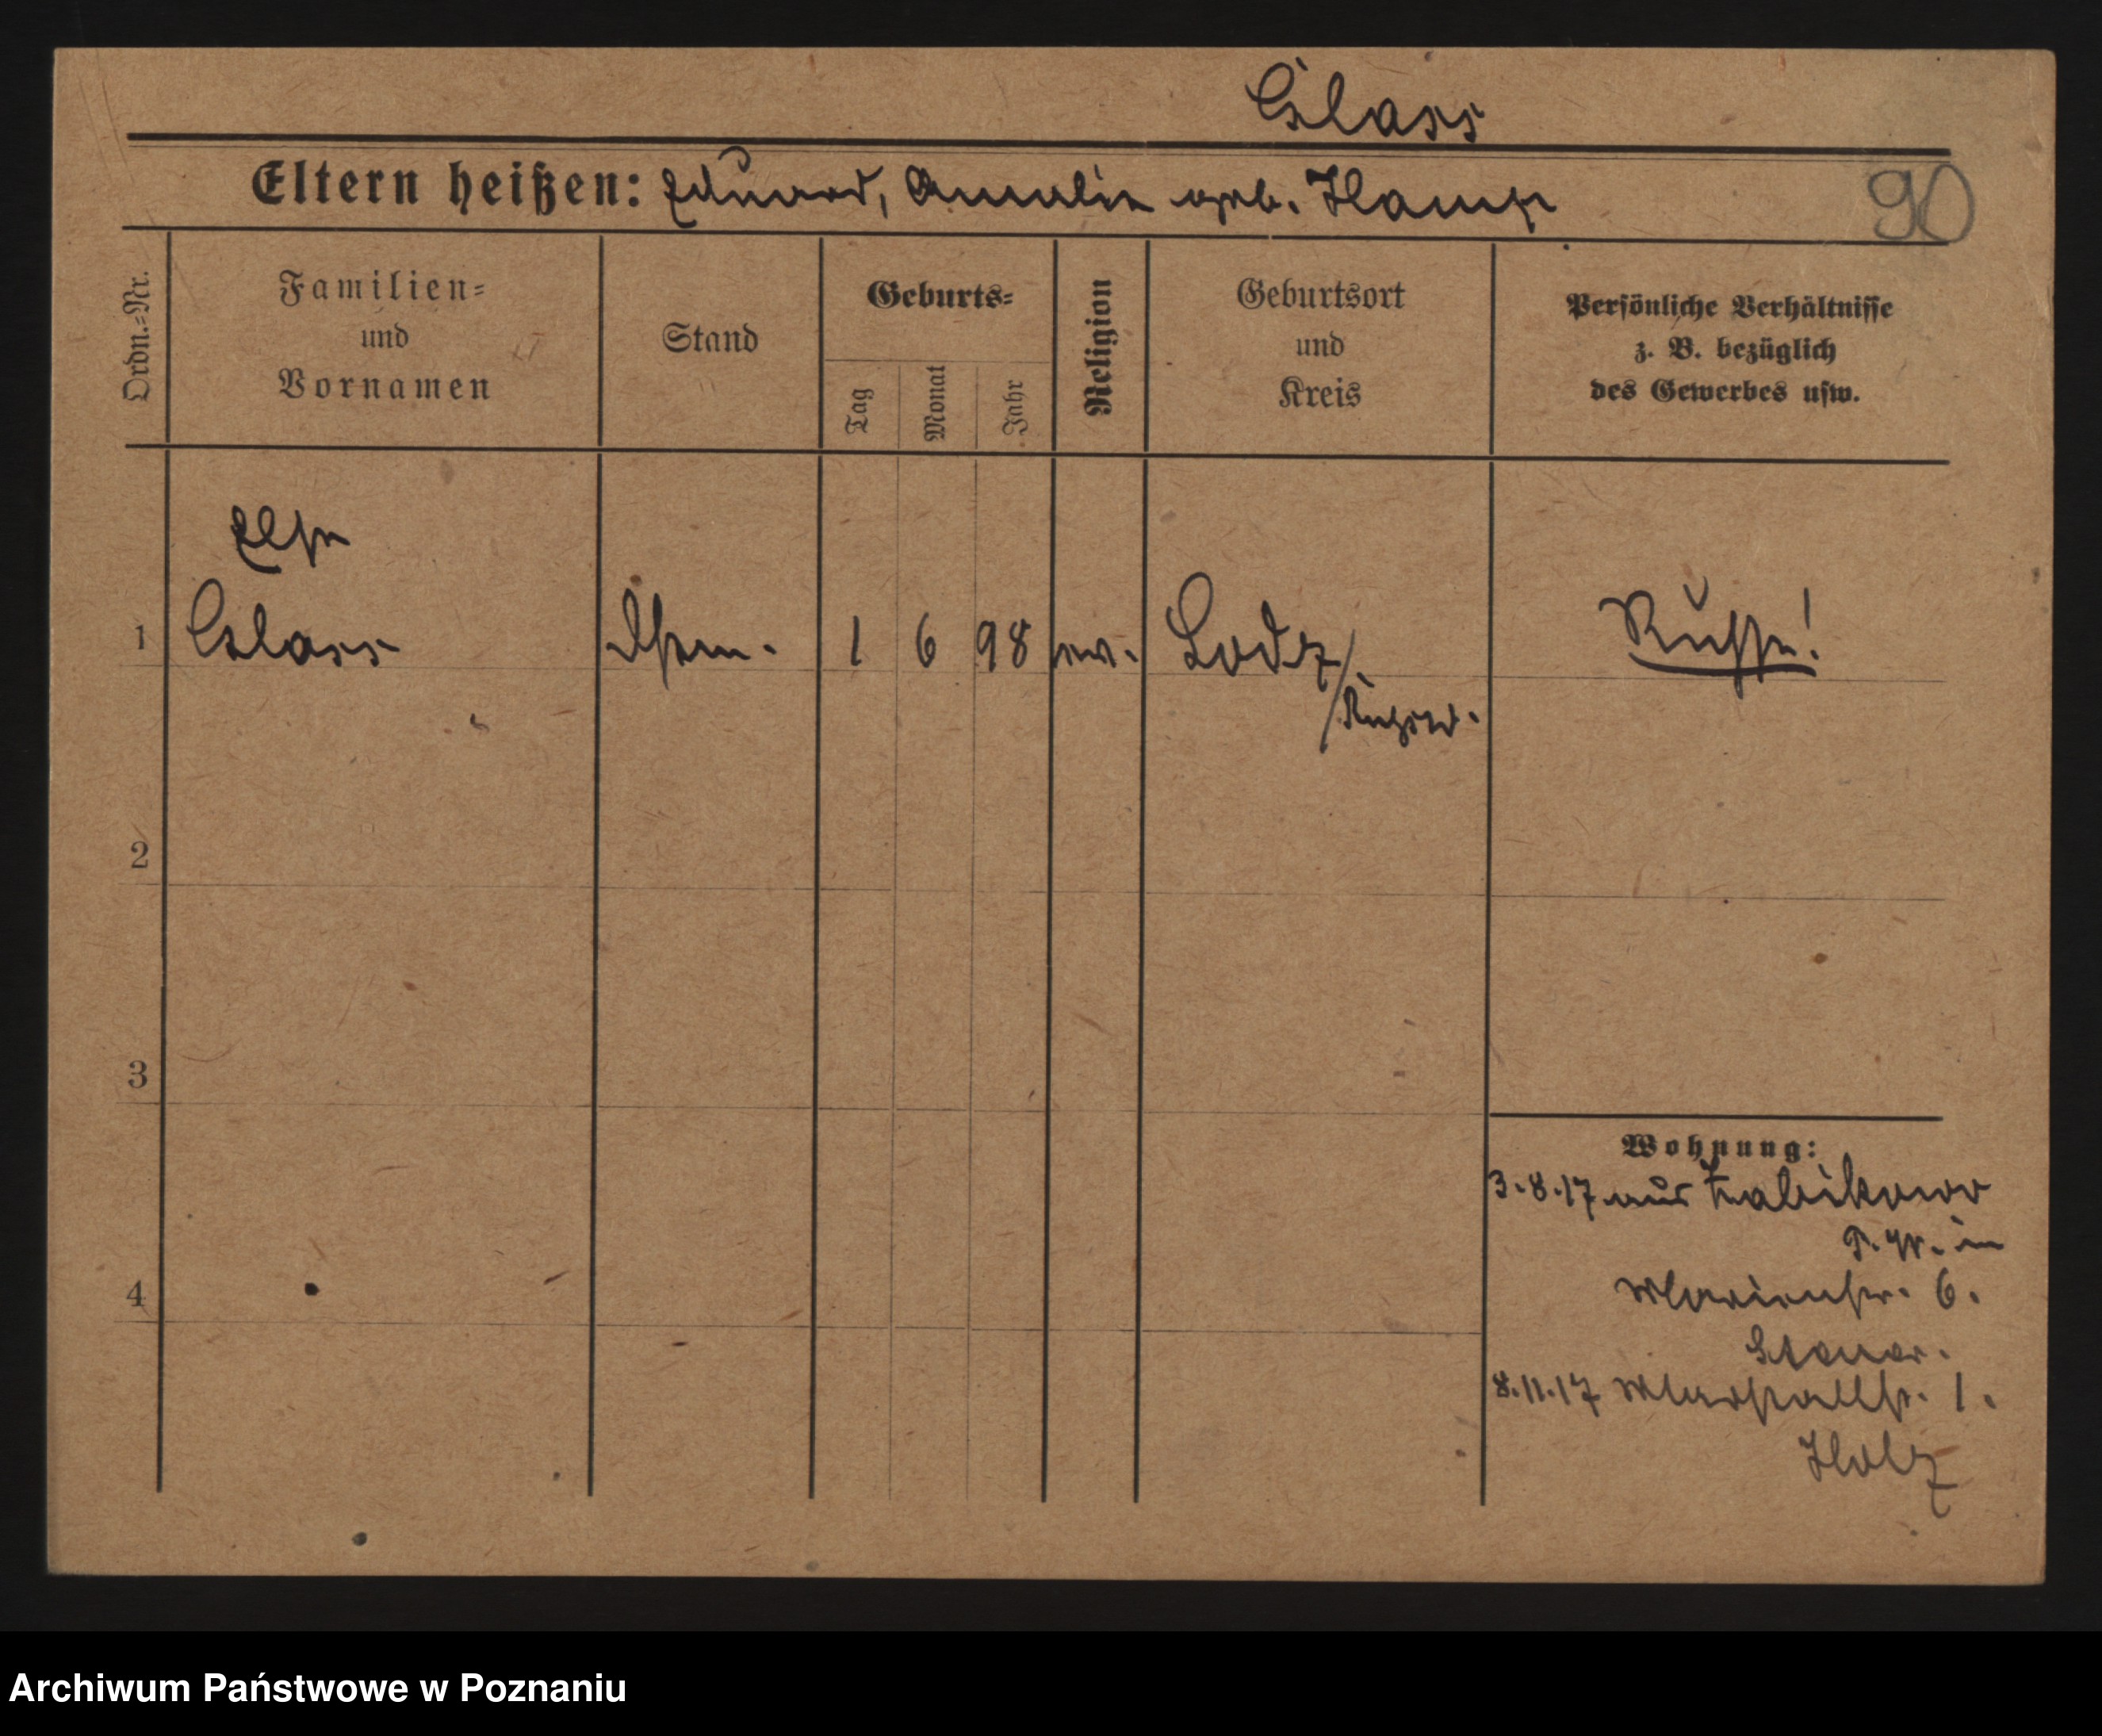 Glass
Eltern heißen: Eduard, Amalie geb. Hamp
90
Ordn.=Nr.
Familien=
und
Vornamen
Stand
Geburts=
Tag
Monat
Jahr
Religion
Geburtsort
und
Kreis
Persönliche Verhältnisse
z. B. bezüglich
des Gewerbes usw.
Else
1 Glass 1 6 98 ev. Lodz/ Russe!
/Russld.
2
3
4
Wohnung:
3.8.17 aus Zabikowo
P. W. in
Marienstr. 6.
8.11.17 Marstallstr. 1.
Holz
Archiwum Państwowe w Poznaniu